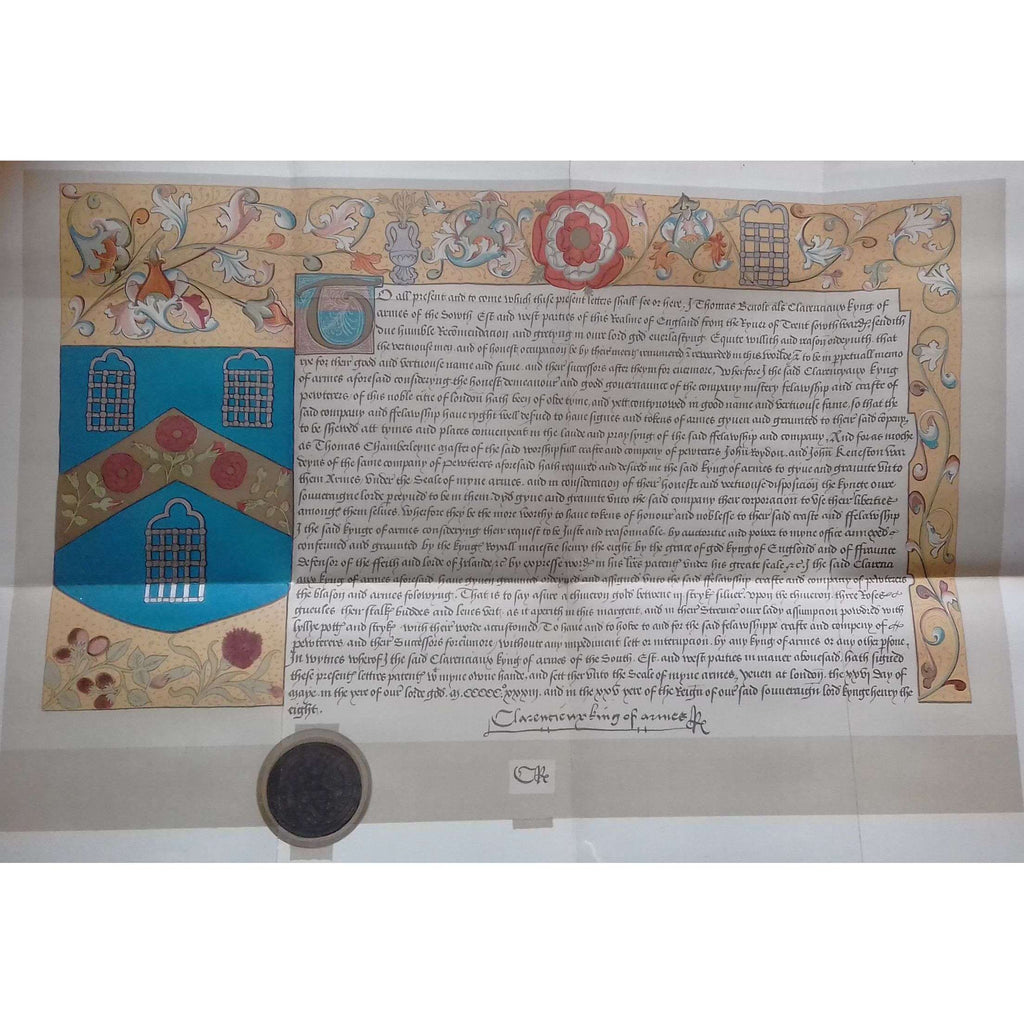 To all present and to come which these present letters shall see or here, I Thomas Benolt alš Clarenciaux kyng of
armes of the Sowth Est and west parties of this Realme of England from the Ryver of Trent sowthwardꝭ, sendith
due humble Recomendation and gretyng in our lord god everlastyng. Equite willith and reason ordeyneth that
the vertuouse men and of honest occupation be by their merits remunered & rewarded in this worlde & to be in ppetuall memo
rye for their good and vertuouse name and fame, and their successors after them for evermore, Wherfore I the said Clarencyaux kyng
of armes aforesaid consideryng the honest demeanour and good governaunce of the company mistery felawship and crafte of
pewterers of this noble citie of london hath been of olde tyme, and yett contynewed in good name and vertuouse fame, so that the
said company and ffelawship have ryght well deserued to have signes and tokens of armes gyven and graunted to their said company,
to be shewed att tymes and places convenyent in the laude and praysyng of the said ffelawship and company, And for as moche
as Thomas Chamberleyne master of the said worshipfull crafte and company of pewterers John Roydon, and John Keneston war
deyns of the same company of pewterers aforesaid hath required and desired me the said kyng of armes to gyue and graunte vnto
them Armes vnder the Seale of myne armes, and in consideration of their honeste and vertuouse disposition the kynge oure
souueraigne lorde perceued to be in them dyd gyue and graunte vnto the said company their corporation to vse their liberties
amonge them selues, Wherfore they be the more worthy to have tokens of honour and noblesse to their said crafte and ffelawship
I the said kynge of armes consideryng their request to be Juste and reasonnable, by auctorite and power to myne office annexed
confermed and graunted by the kynge royall maiestie henry the eight by the grace of god kyng of Englond and of ffraunce
defensor of the ffeith and lorde of Irlande, &c by expresse wordꝭ in his lrēs patentꝭ vnder his greate seale, &c, I the said Clarenci
aux king of armes aforesaid have gyuen graunted ordeyned and assigned vnto the said ffelawship crafte and company of pewterers
the blason and armes folowyng, That is to say asure a cheueron gold betwene iij strykꝭ siluer, vpon the cheueron three Roses
gueules their stalkꝭ buddes and leues vert, as it aperith in this margent, and in their Stremer our lady assumption powdred with
lyllye pottꝭ and strykꝭ with their worde accustomed, To have and to holde to and for the said felawshippe crafte and company of
pewterers and their Successors forevermore, without any impediment lett or interupcion, by any kyng of armes or any other pſone,
In wytnes wherof I the said Clarenciaux kyng of armes of the South, Est, and west parties in maner abouesaid, hath signed
these present lettres patentꝭ wt myne owne hande, and sett ther vnto the Seale of myne armes, yeuen at london, the xxvi day of
maye, in the yere of our lorde god, m, CCCCC, xxxiij, and in the xxv yere of the Reign of our said souueraign lord kynge henry the
eight.
Clarencieux king of armes